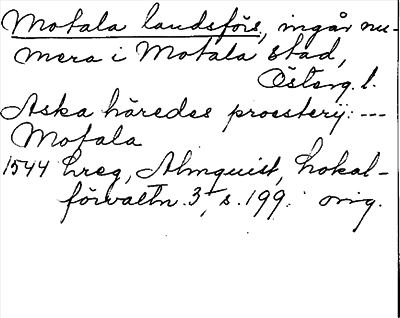 Motala landsförs, ingår nu-
mera i Motala stad,
Österg. l.
Aska härades prosteri: ---
Motala
1544 hreg, Almquist, Lokal-
förvaltn. 3, s. 199. orig.